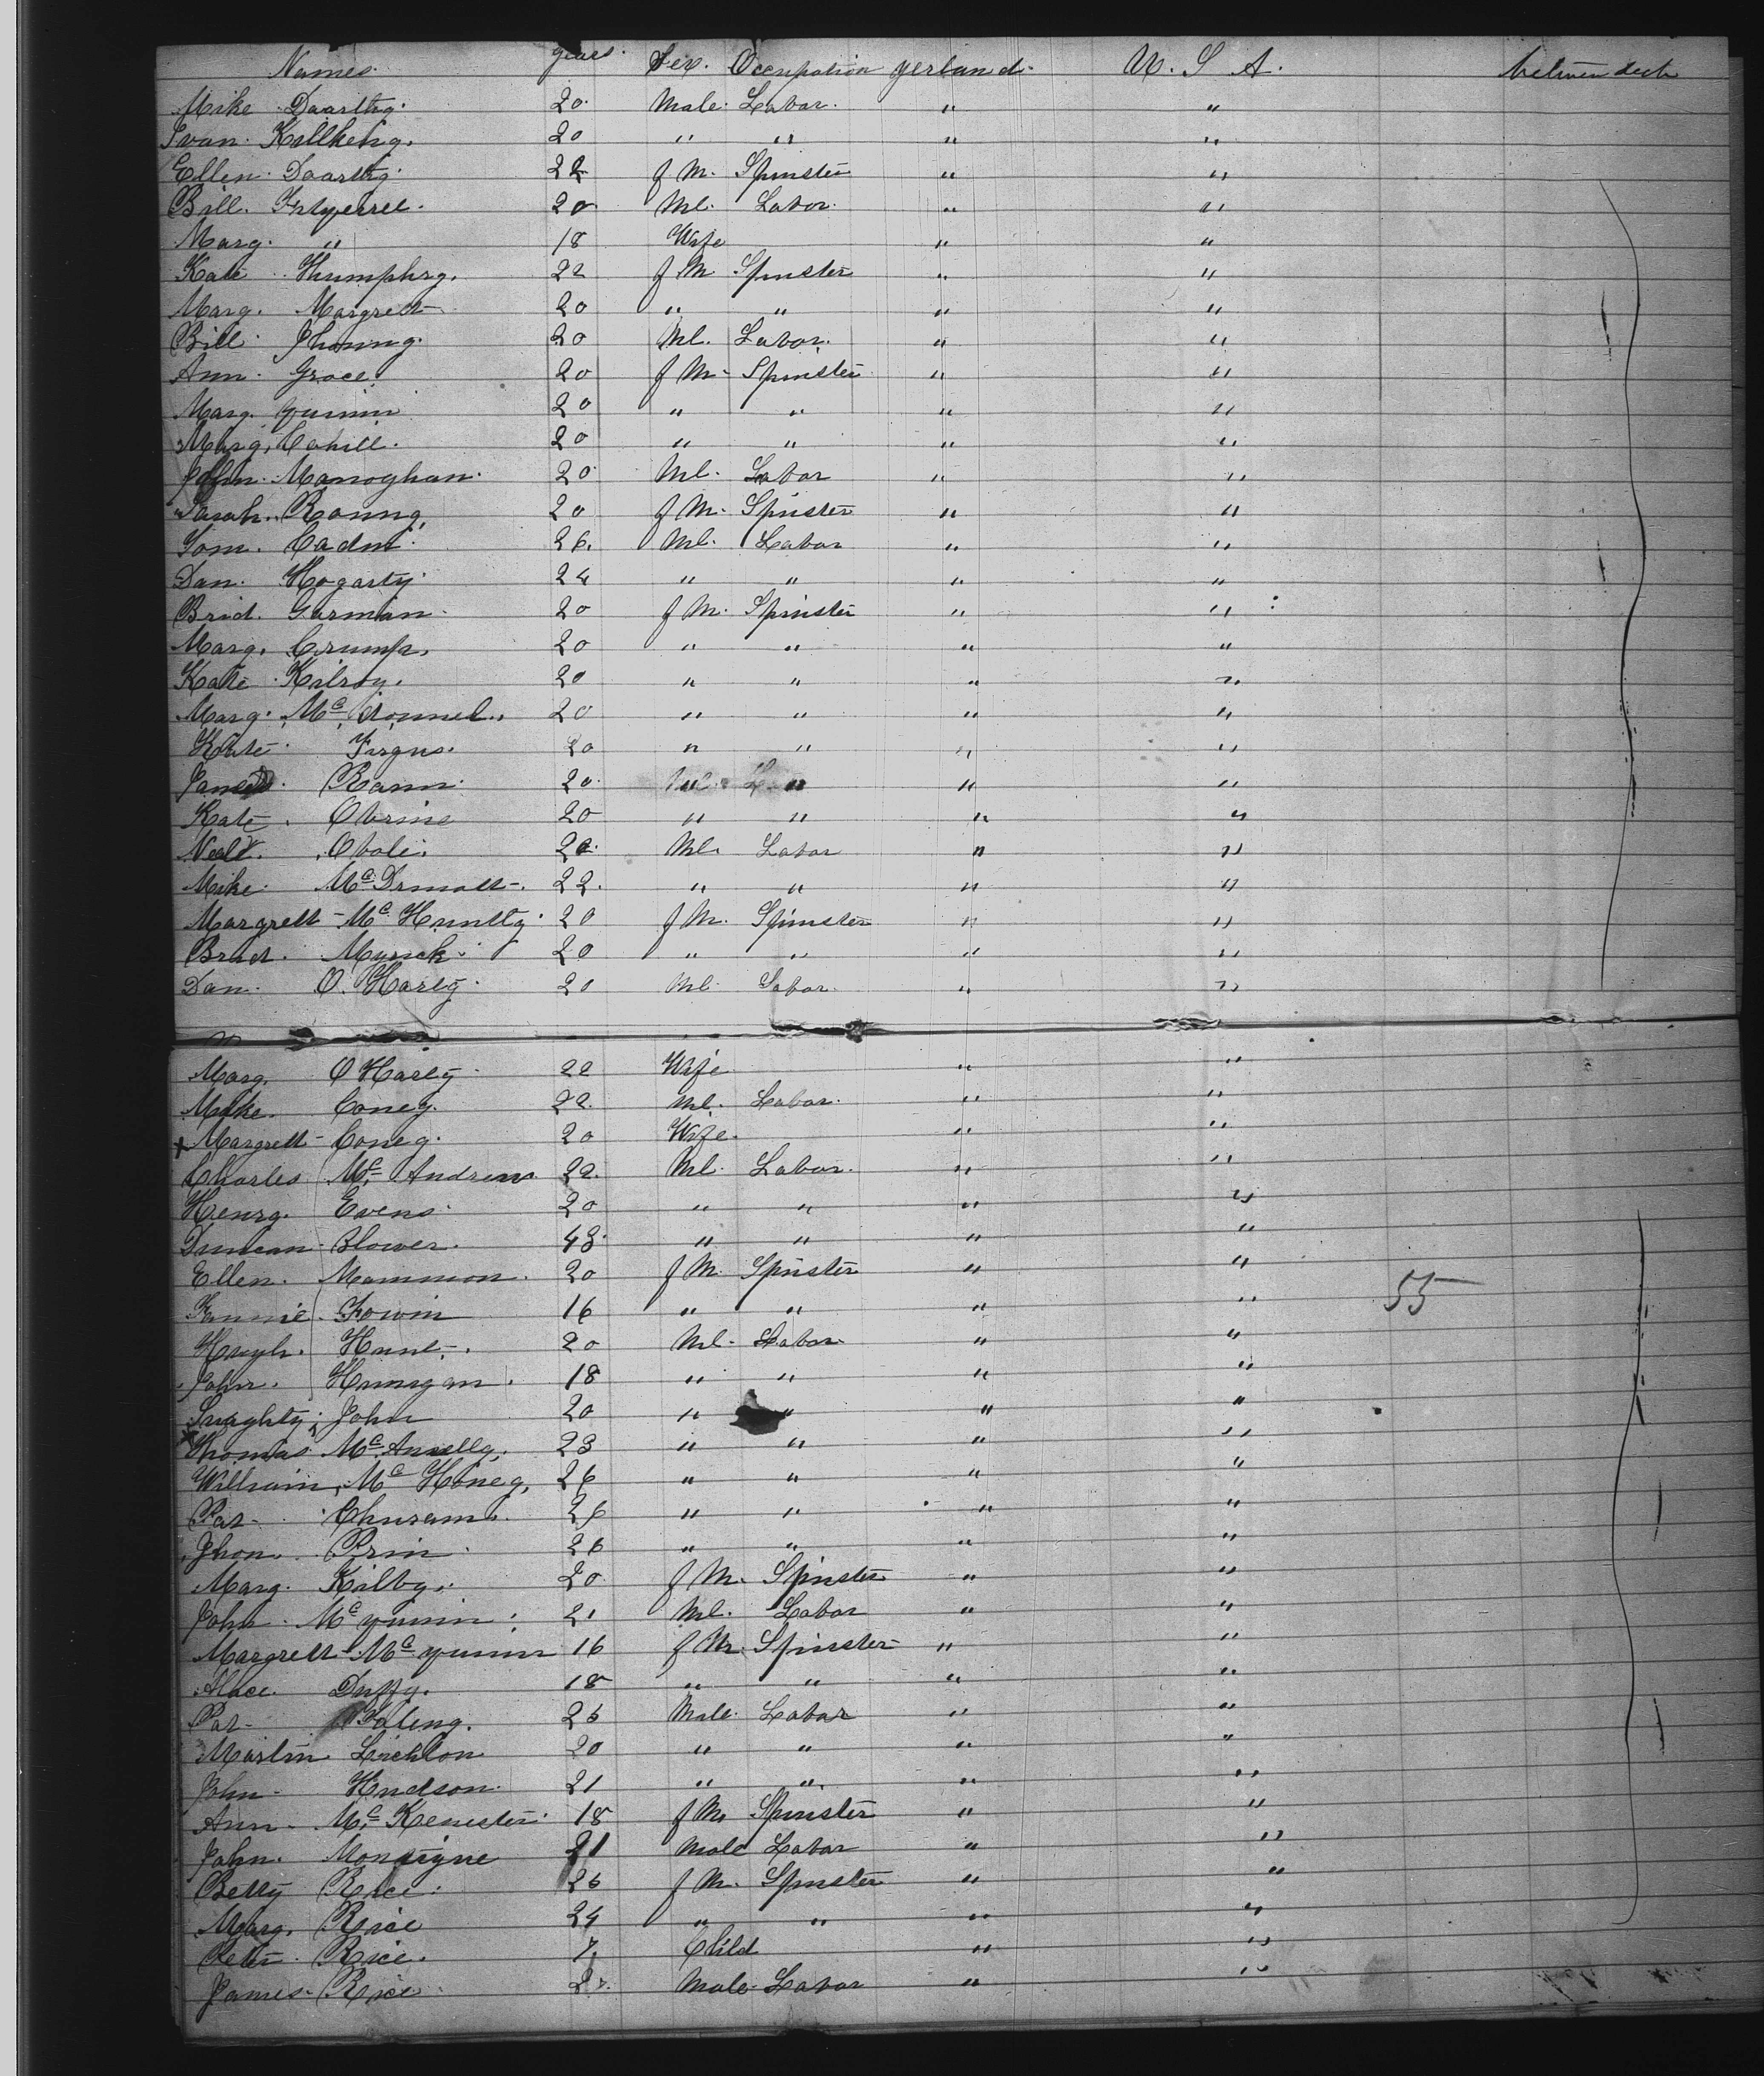 Names. years. Sex. Occupation Yerland. U. S. A. between deck
Mike Daarthy. 20. Male. Labar. " "
Ivan. Killkeng. 20 " " " "
Ellen. Daarthy. 22 f M. Spinster " "
Bill. 20. Ml. Labor. " "
Marg. " 18 Wife " "
Kate Thumphrg. 22 f M Spinster " "
Marg. Margrett 20 " " " "
Bill 20 Ml. Labor. " "
Ann. Grace. 20 f M. Spinster " "
Marg. 20 " " " "
Marg. Cahill. 20 " " " "
John. Manoghan. 20. Ml. Labar " "
Sarah. Ranng. 20 f M. Spinster " "
Tom. Cadni. 26. Ml. Labar " "
Dan. Hogarty. 24 " " " "
Brid. Garman. 20 f M. Spinster " "
Marg. Crump. 20 " " " "
Kate Kilroy. 20 " " " "
Marg. Mc. donnel. 20 " " " "
Kate. Firgus. 20 " " " "
Rann. 20. " " "
Kate. Obrine 20 " " " "
Oboli. Ml. Labar " "
Mike. Mc Drmatt. 22. " " " "
Margrett Mc Hunttg. 20 f M. Spinster " "
Brid. Myrick. 20 " " " "
Dan. O. Harly. 20 Ml. Labar. " "
Marg. O Harly. 22 Wife " "
Mike. Coney. 22. Ml. Labar. " "
x Margrett Coney. 20 Wife. " "
Charles Mc. Andrews. 22. Ml. Labar. " "
Henrg. Evens. 20 " " " "
Duncan. Blower. 43. " " " "
Ellen. Mammon. 20 f M. Spinster " "
Fannie. Fowin 16 " " " " 55
Hugh. Hunt. 20 Ml. Labar. " "
John. Hunigan. 18 " " " "
John 20 " " " "
Thomas Mc. Anallg. 23 " " " "
William, Mc Honeg. 26 " " " "
Pat. 26 " " " "
Jhon. Prin. 26 " " " "
Marg. Kilbg. 20. f M. Spinster " "
John. Mc yuinin. 21 Ml. Labar " "
Margrett Mc yuinin 16 f M. Spinster " "
Alace. Duffy. 18 " " " "
Pat. 26 Male. Labar " "
Martin. Lichton 20 " " " "
John. Hudson. 21 " " " "
Ann. Mc. Kenister. 18 f M. Spinster " "
John. 21 Male Labar " "
Betty Rice. 26 f M. Spinster " "
Marg. Rice 24 " " " "
Petir. Rice. 7. Child " "
James. Rice. Male. Labar " "